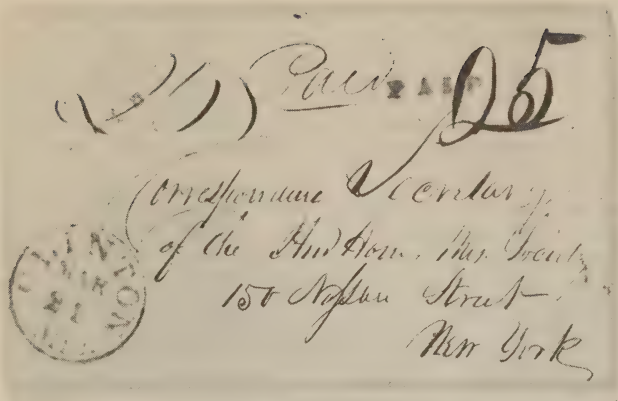 Paid PAID 25
Correspondence Secretary
of the Am Hom. Mis. Society
150 Nassau Street
New York
CLINTON
MAR
21